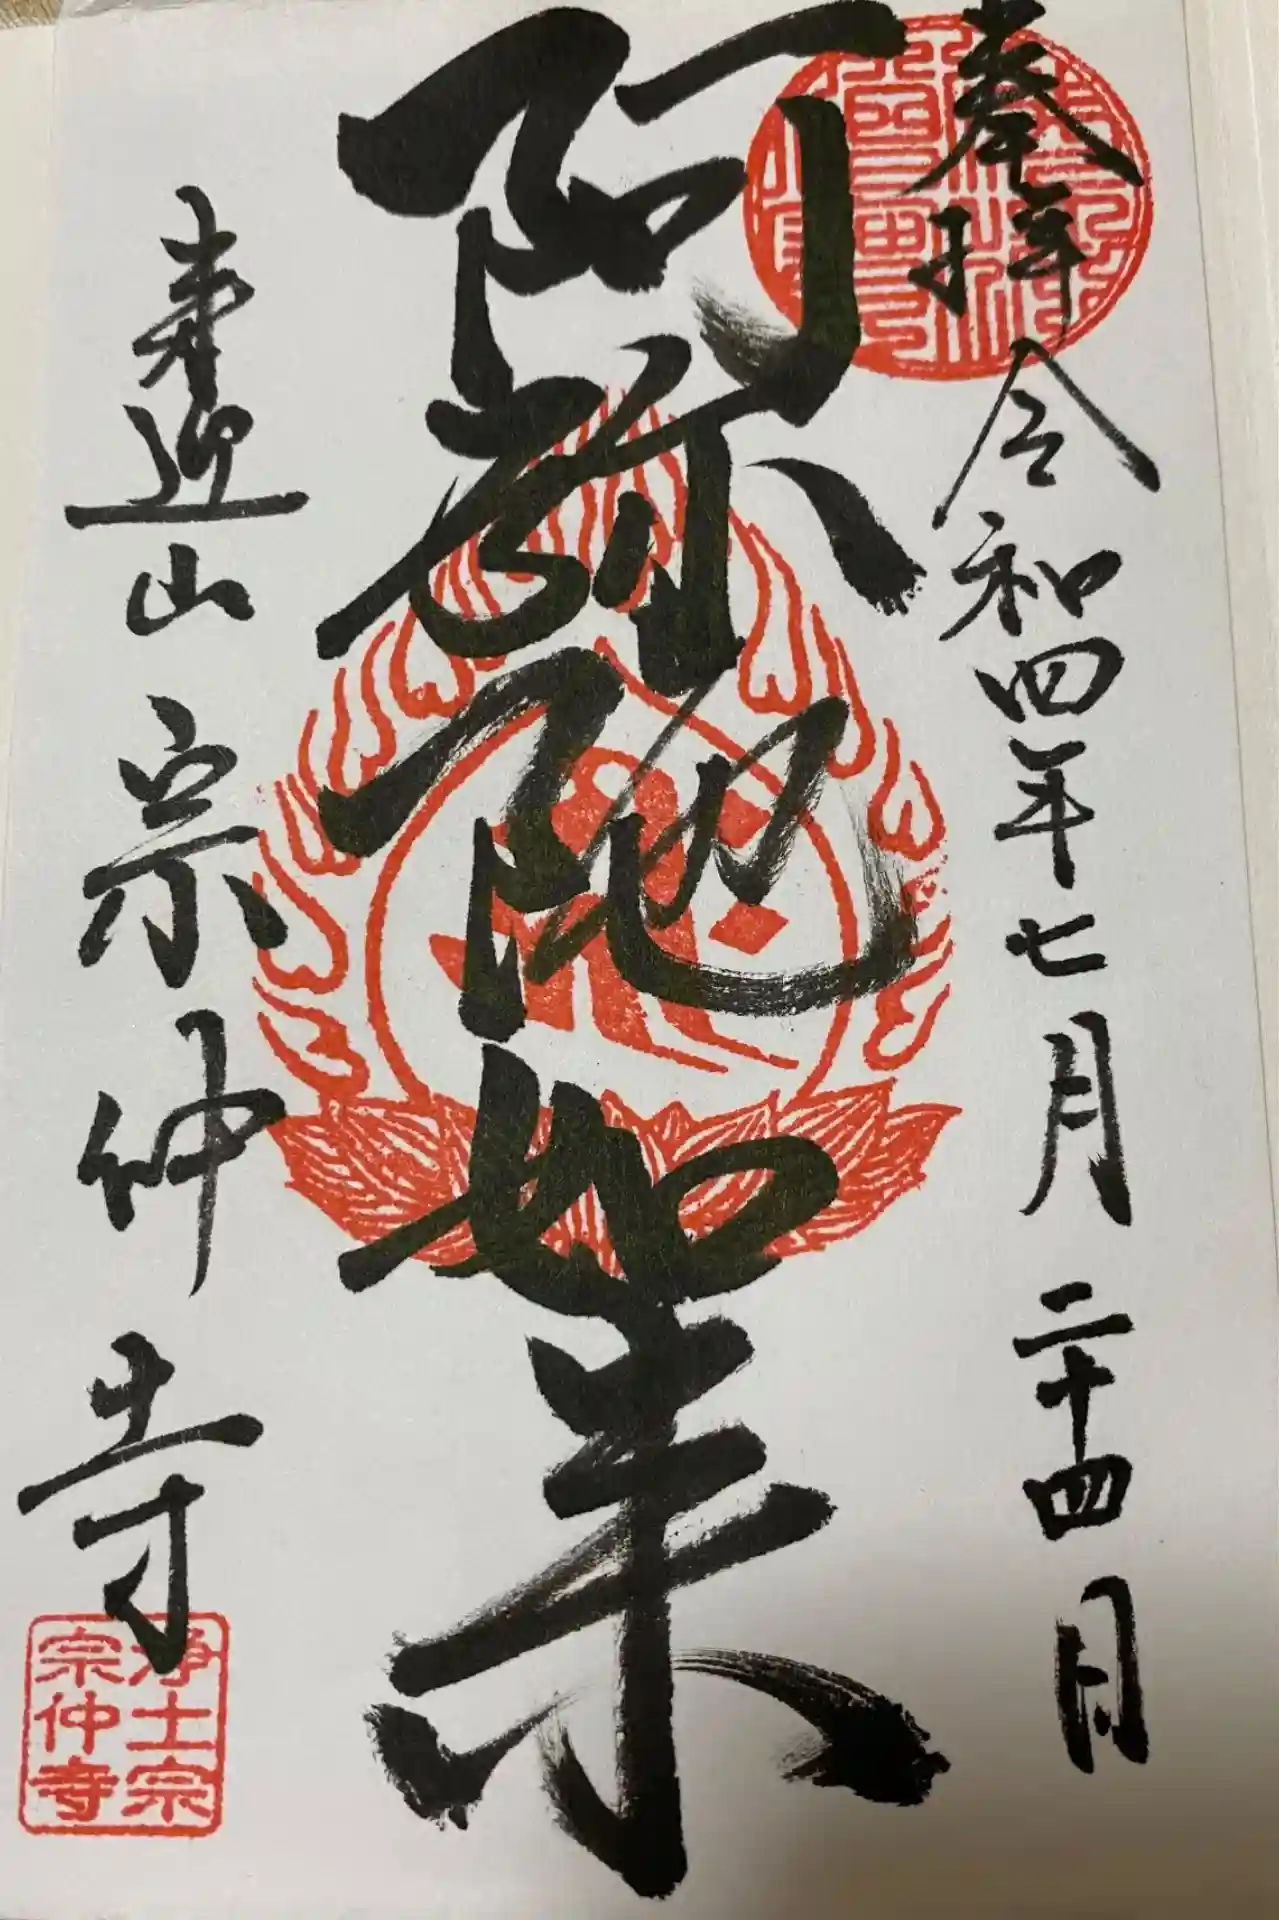 奉拝 令和四年七月二十四日
阿弥陀如来
来迎山 宗仲寺
浄土宗
宗仲寺